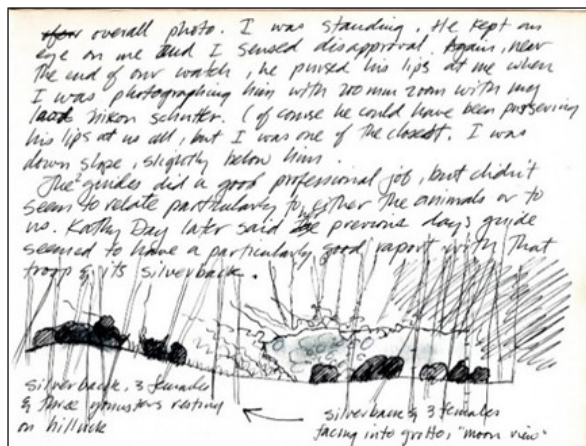 overall photo. I was standing. He kept an
eye on me and I sensed disapproval. Again, near
the end of our watch, he pursed his lips at me when
I was photographing him with 200mm zoom with my
loud Nikon schutter. (Of course he could have been purseving
his lips at us all, but I was one of the closest. I was
down slope, slightly below him.
The 2 guides did a good professional job, but didn't
seem to relate particularly to either the animals or to
us. Kathy Day later said the previous day's guide
seemed to have a particularly good raport with that
troop & its silverback.
silverback, 3 females
& three youngsters resting
on hillock
silverback & 3 females
facing into grotto, "moon view"